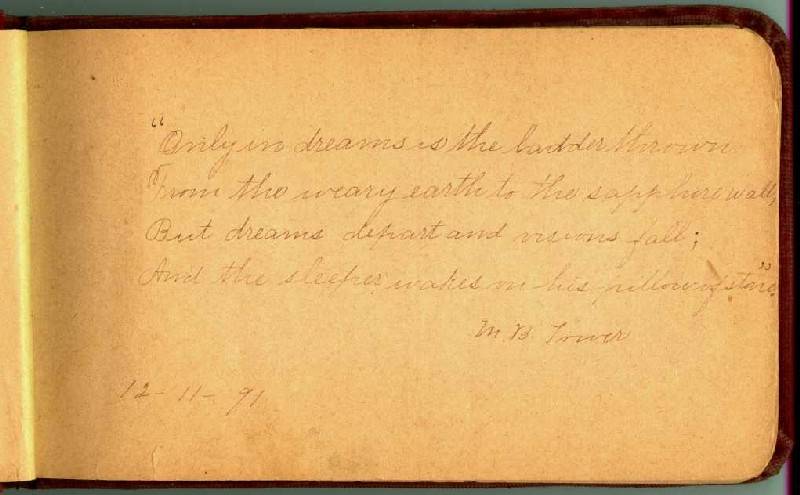 "Only in dreams is the ladder thrown
From the weary earth to the sapphire walls,
But dreams depart and visions fall;
And the sleeper wakes on his pillow of stone."
M. B. Tower
12-11-91